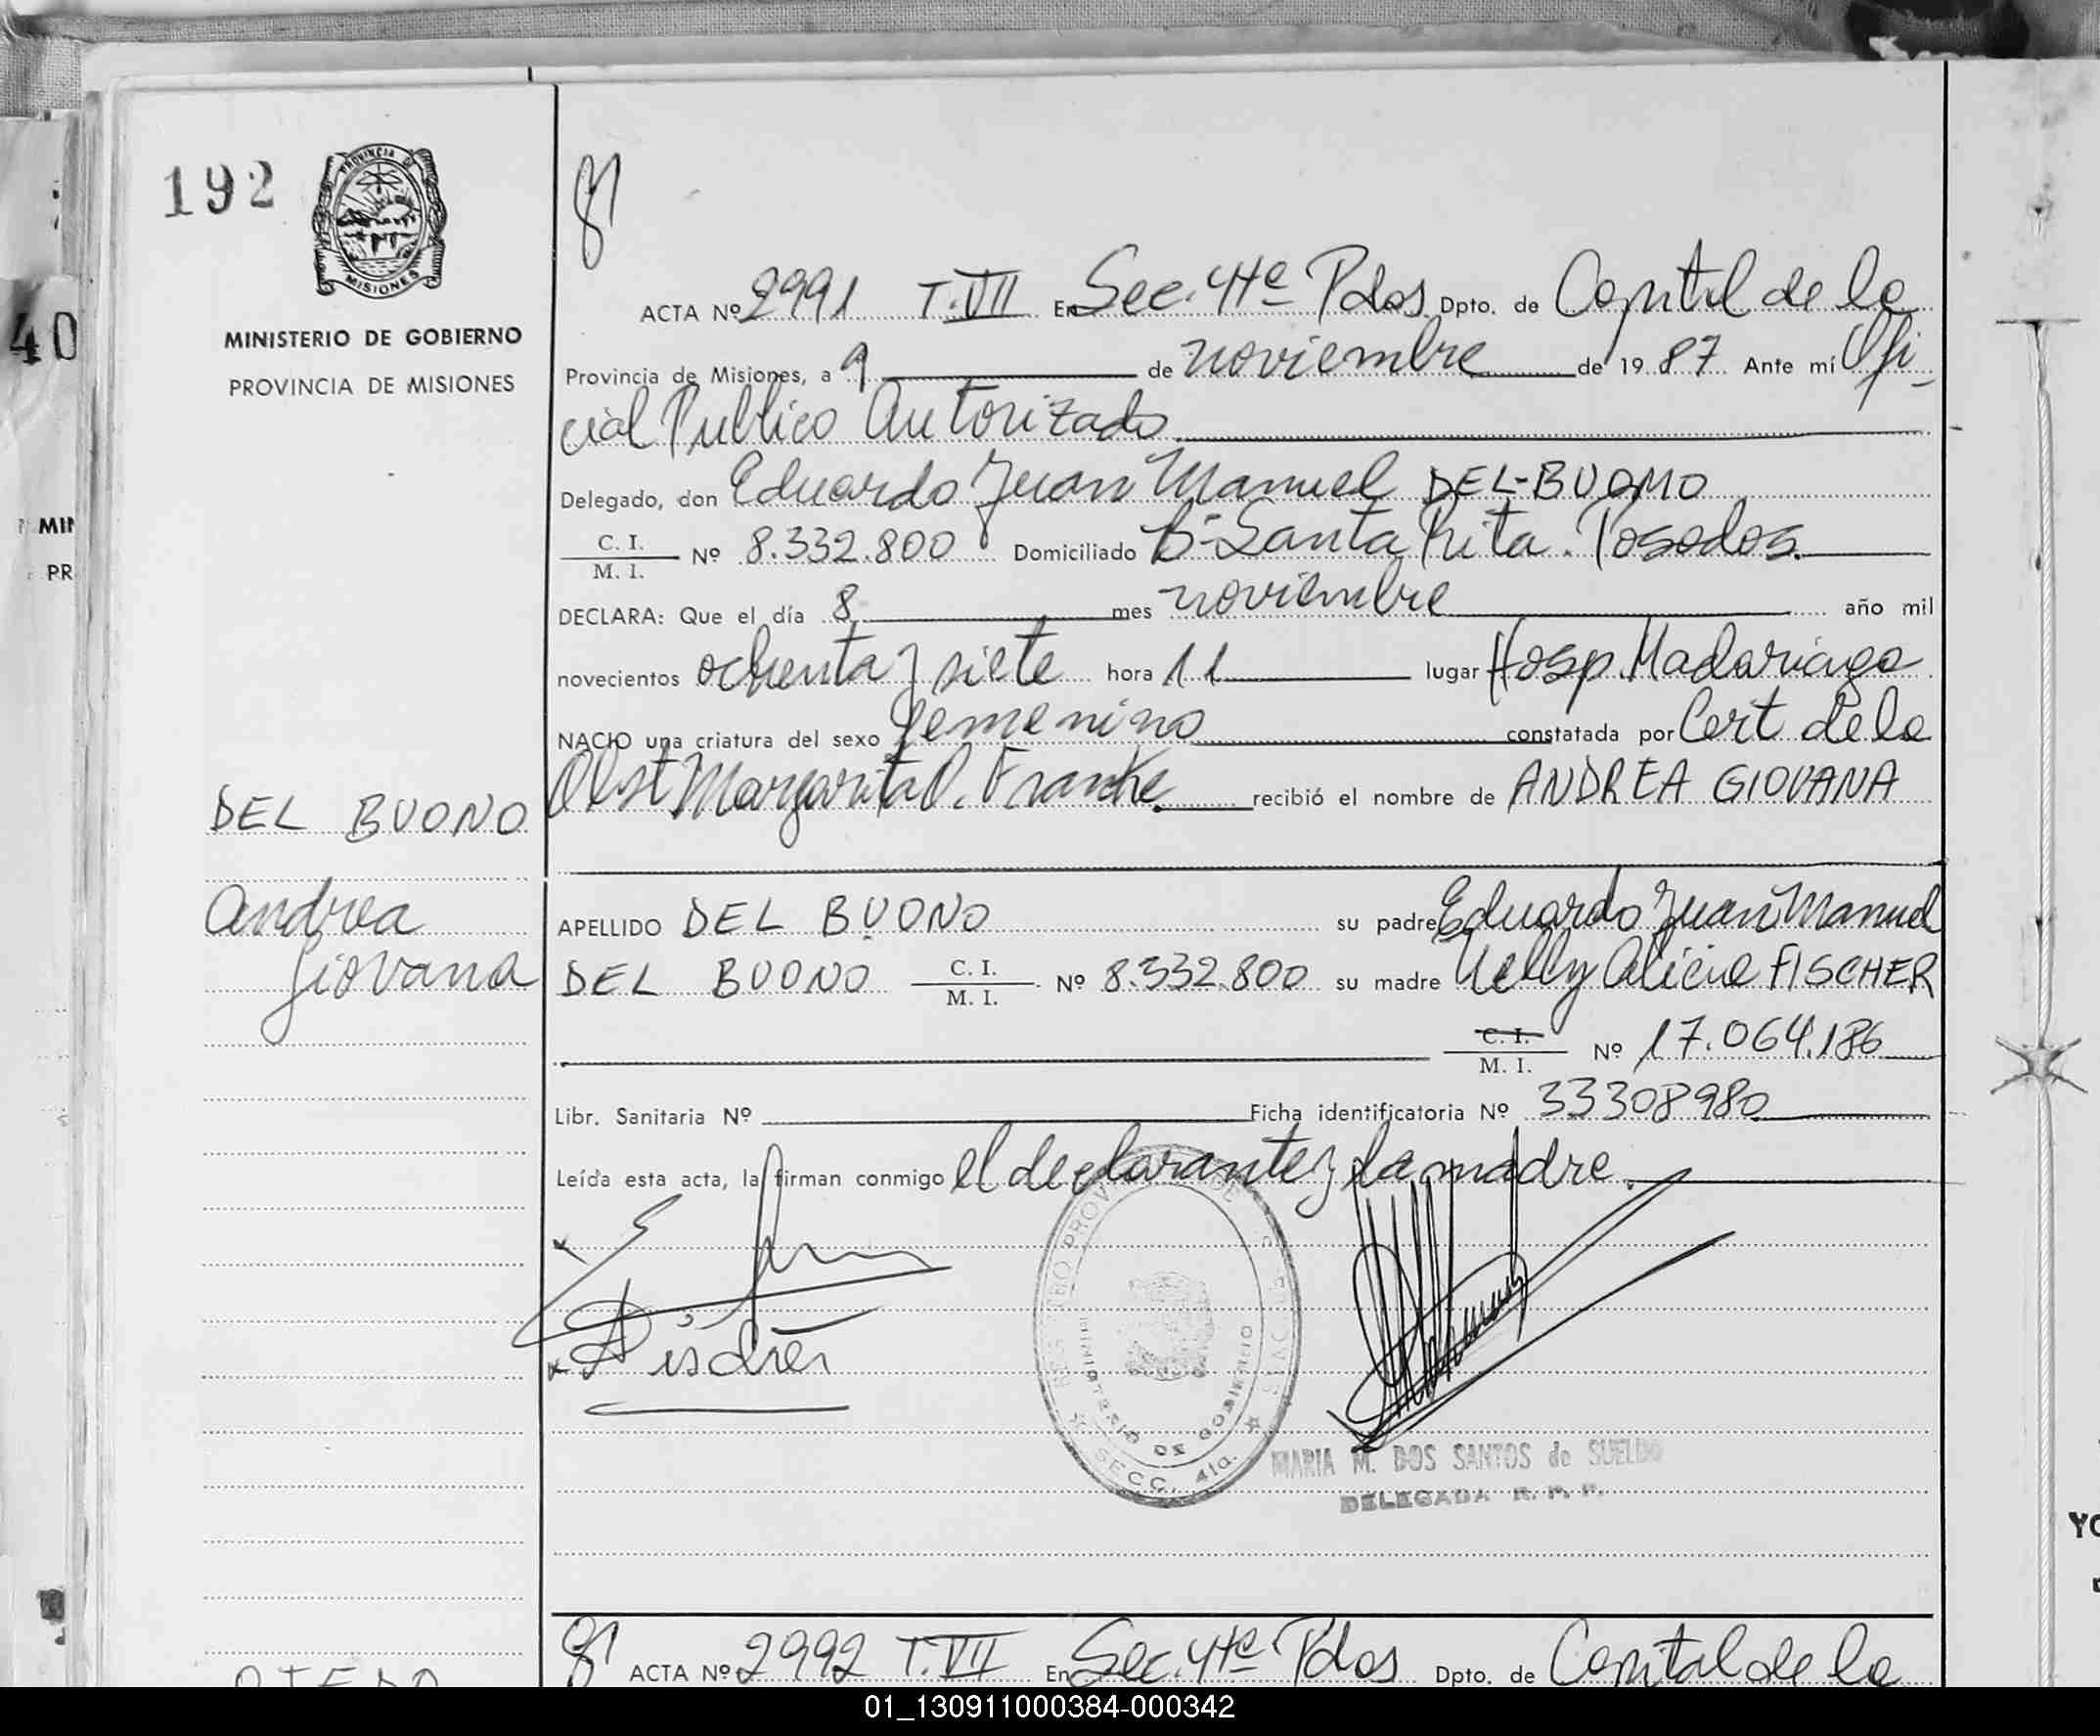 192
PROVINCIA DE
MISIONES
MINISTERIO DE GOBIERNO
PROVINCIA DE MISIONES
40
MIN
PR
DEL BUONO
Andrea
Giovana
ACTA Nº 2991 T.VII En Sec. 4te Pdas Dpto. de Capital de la
Provincia de Misiones, a 9 de noviembre de 1987 Ante mí Ofi-
cial Publico Autorizado
Delegado, don Eduardo Juan Manuel DEL-BUOMO
C. I.
M. I. Nº 8.332.800 Domiciliado Bº Santa Rita. Posadas.
DECLARA: Que el día 8 mes noviembre año mil
novecientos ochenta y siete hora 11 lugar Hosp. Madariaga
NACIO una criatura del sexo femenino constatada por Cert de la
Obst Margarita O. Franke recibió el nombre de ANDREA GIOVANA
APELLIDO DEL BUONO su padre Eduardo Juan Manuel
DEL BUONO C. I. M. I. Nº 8.332.800 su madre Nelly Alicia FISCHER
C. I. M. I. Nº 17.064.186
Libr. Sanitaria Nº Ficha identificatoria Nº 33308980
Leída esta acta, la firman conmigo el declarante y la madre.
REGISTRO PROVINCIAL DE
MINISTERIO DE GOBIERNO
SECC. 4ta.
MARIA M. DOS SANTOS de SUELDO
DELEGADA R. P. P.
ACTA Nº 2992 T.VII En Sec. 4te Pdas Dpto. de Capital de la
01_130911000384-000342